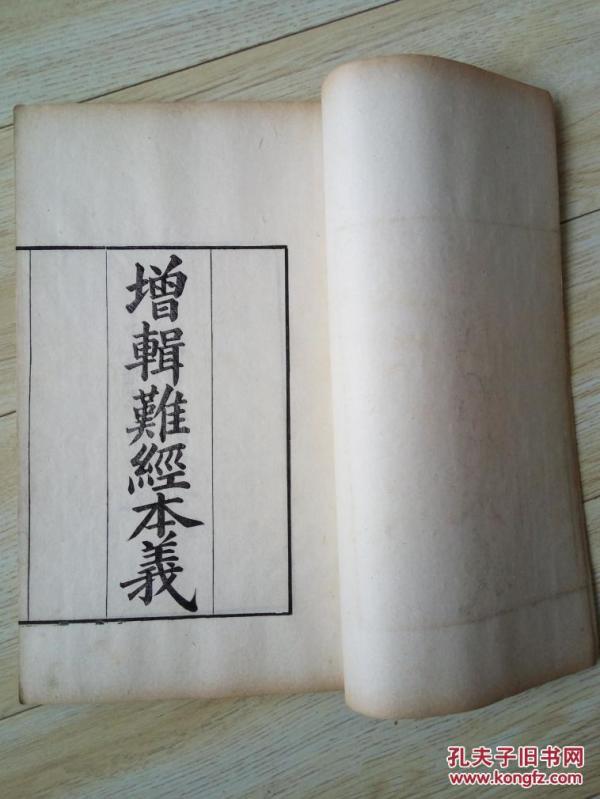 增輯難經本義
孔夫子旧书网
www.kongfz.com